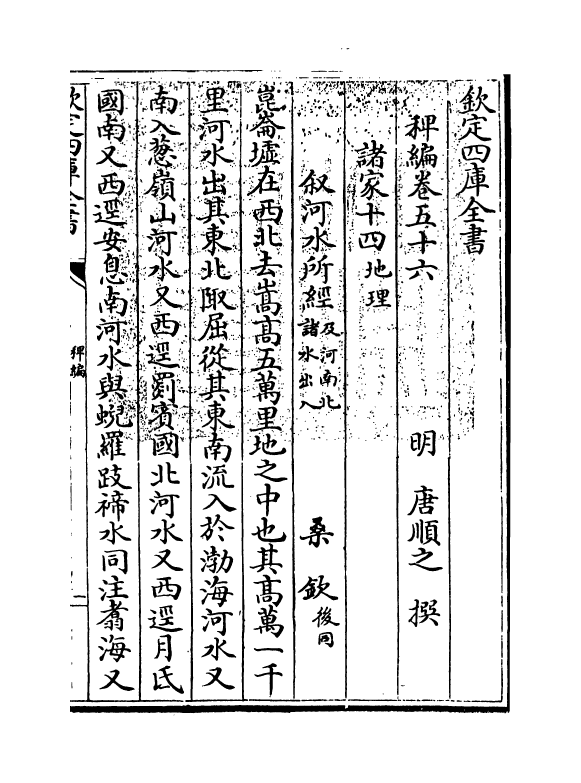 欽定四庫全書
稗編卷五十六
明 唐順之 撰
諸家十四地理
叙河水所經及河南北諸水出入 桑欽後同
崑崙墟在西北去嵩髙五萬里地之中也其髙萬一千
里河水出其東北陬屈從其東南流入於渤海河水又
南入葱嶺山河水又西逕罽賓國北河水又西逕月氏
國南又西逕安息南河水與蜺羅跂褅水同注翥海又
欽定四庫全書
稗編